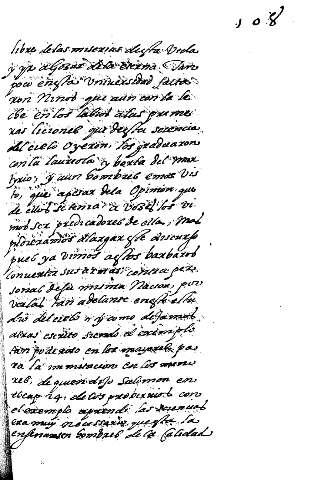 108
libre de las miserias desta Vida
y yr a gozar de la eterna. Tam
poco en esta Universidad falta
ron Niños que aun con la le
che en los labios a las prime
ras liciones que desta sciencia
del cielo oyeron, los graduaron
con la laureola y borla del mar
tyrio; y aun hombres emos vis
to, que apesar de la Opinion que
de ellos se tenia a vozes los vi
mos ser predicadores de ella; Mas
pudieramos alargar este discurso
pues ya vimos a estos barbaros
convertir sus armas contra per
sonas de su misma Nacion, por
verlas tan adelante en este estu
dio del cielo y como dejamos
atras escrito siendo el exemplo
tan poderoso en los mayores pa
ra la immitacion en los meno
res, de quien dijo Salomon en
el cap. 24. de los proverbios con
el exemplo aprendi la sciencia
era muy necessario que esta la
enseñassen hombres de la Calidad